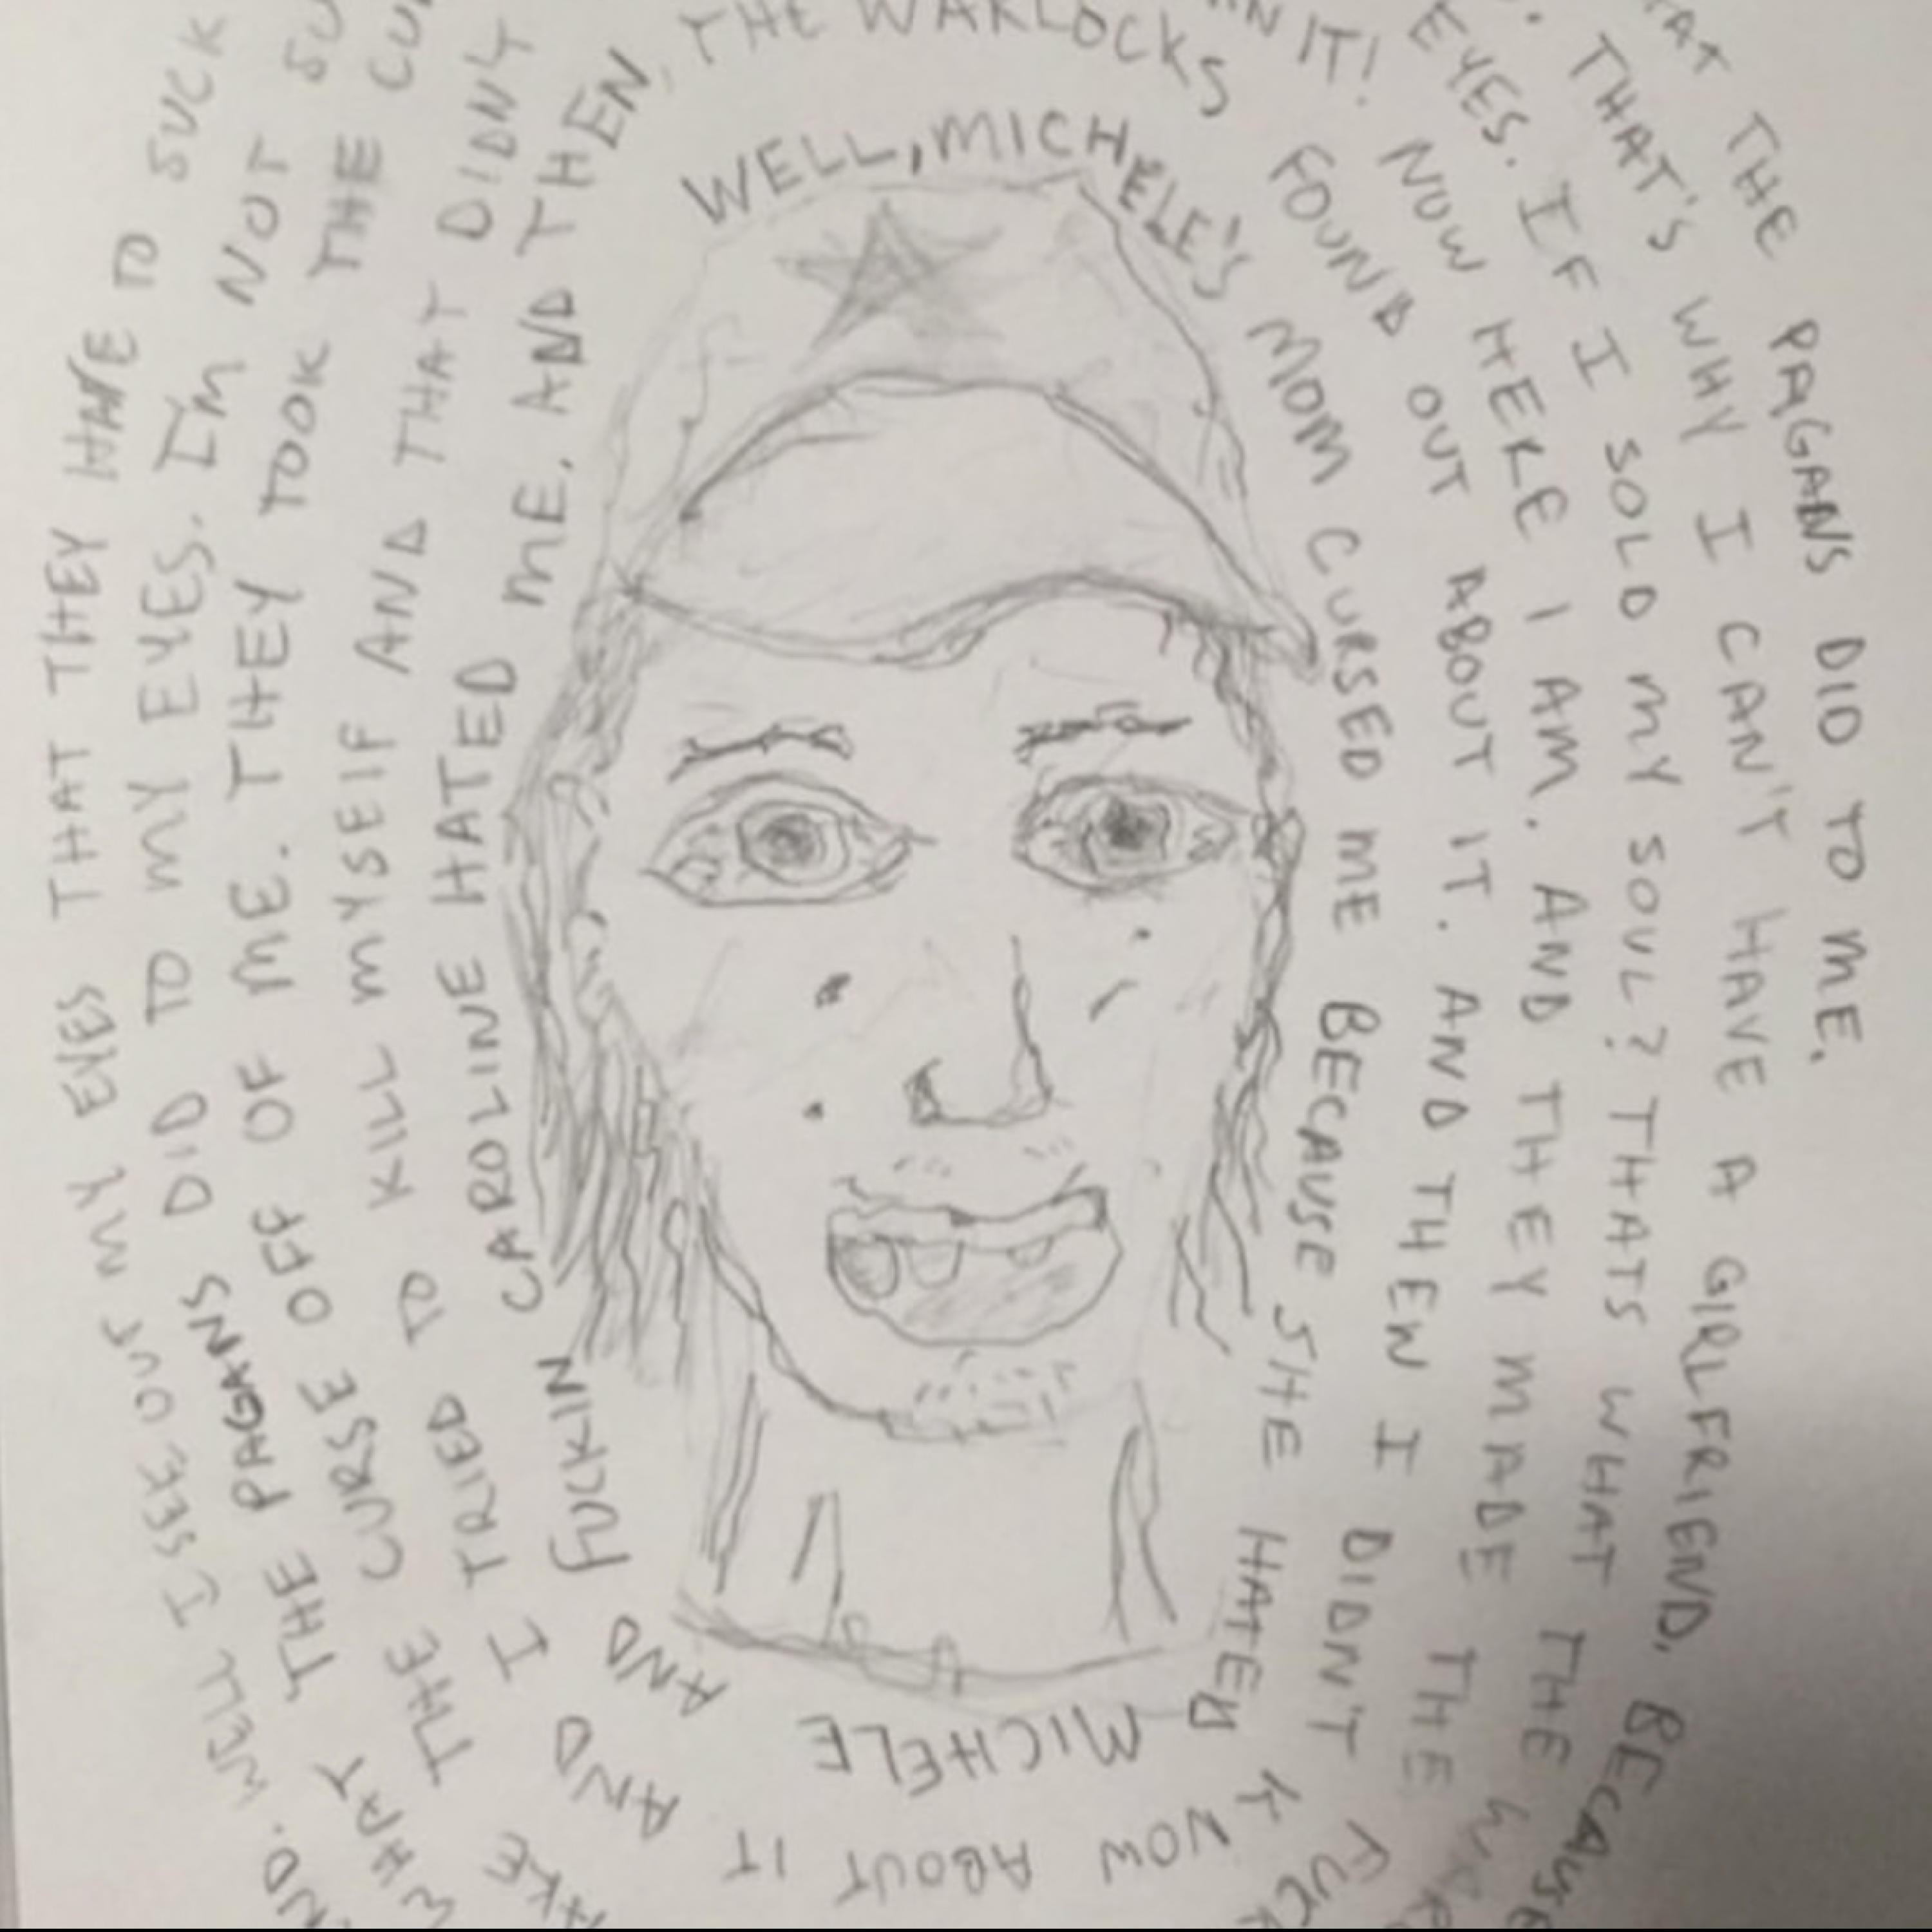 WELL, MICHELE'S MOM CURSED ME BECAUSE SHE HATED MICHELE AND FUCKIN CAROLINE HATED ME. AND THEN,
THE WARLOCKS FOUND OUT ABOUT IT. AND THEN I DIDN'T KNOW ABOUT IT AND I TRIED TO KILL MYSELF AND THAT DIDN'T
IT! NOW HERE I AM. AND THEY MADE THE FUCK
THE CURSE OFF OF ME. THEY TOOK THE
EYES. IF I SOLD MY SOUL? THATS WHAT THE
WHAT THE PAGANS DID TO MY EYES. I'M NOT
THAT'S WHY I CAN'T HAVE A GIRLFRIEND. BECAUSE
WELL I SEE OUT MY EYES THAT THEY HAVE TO SUCK
THE PAGANS DID TO ME.